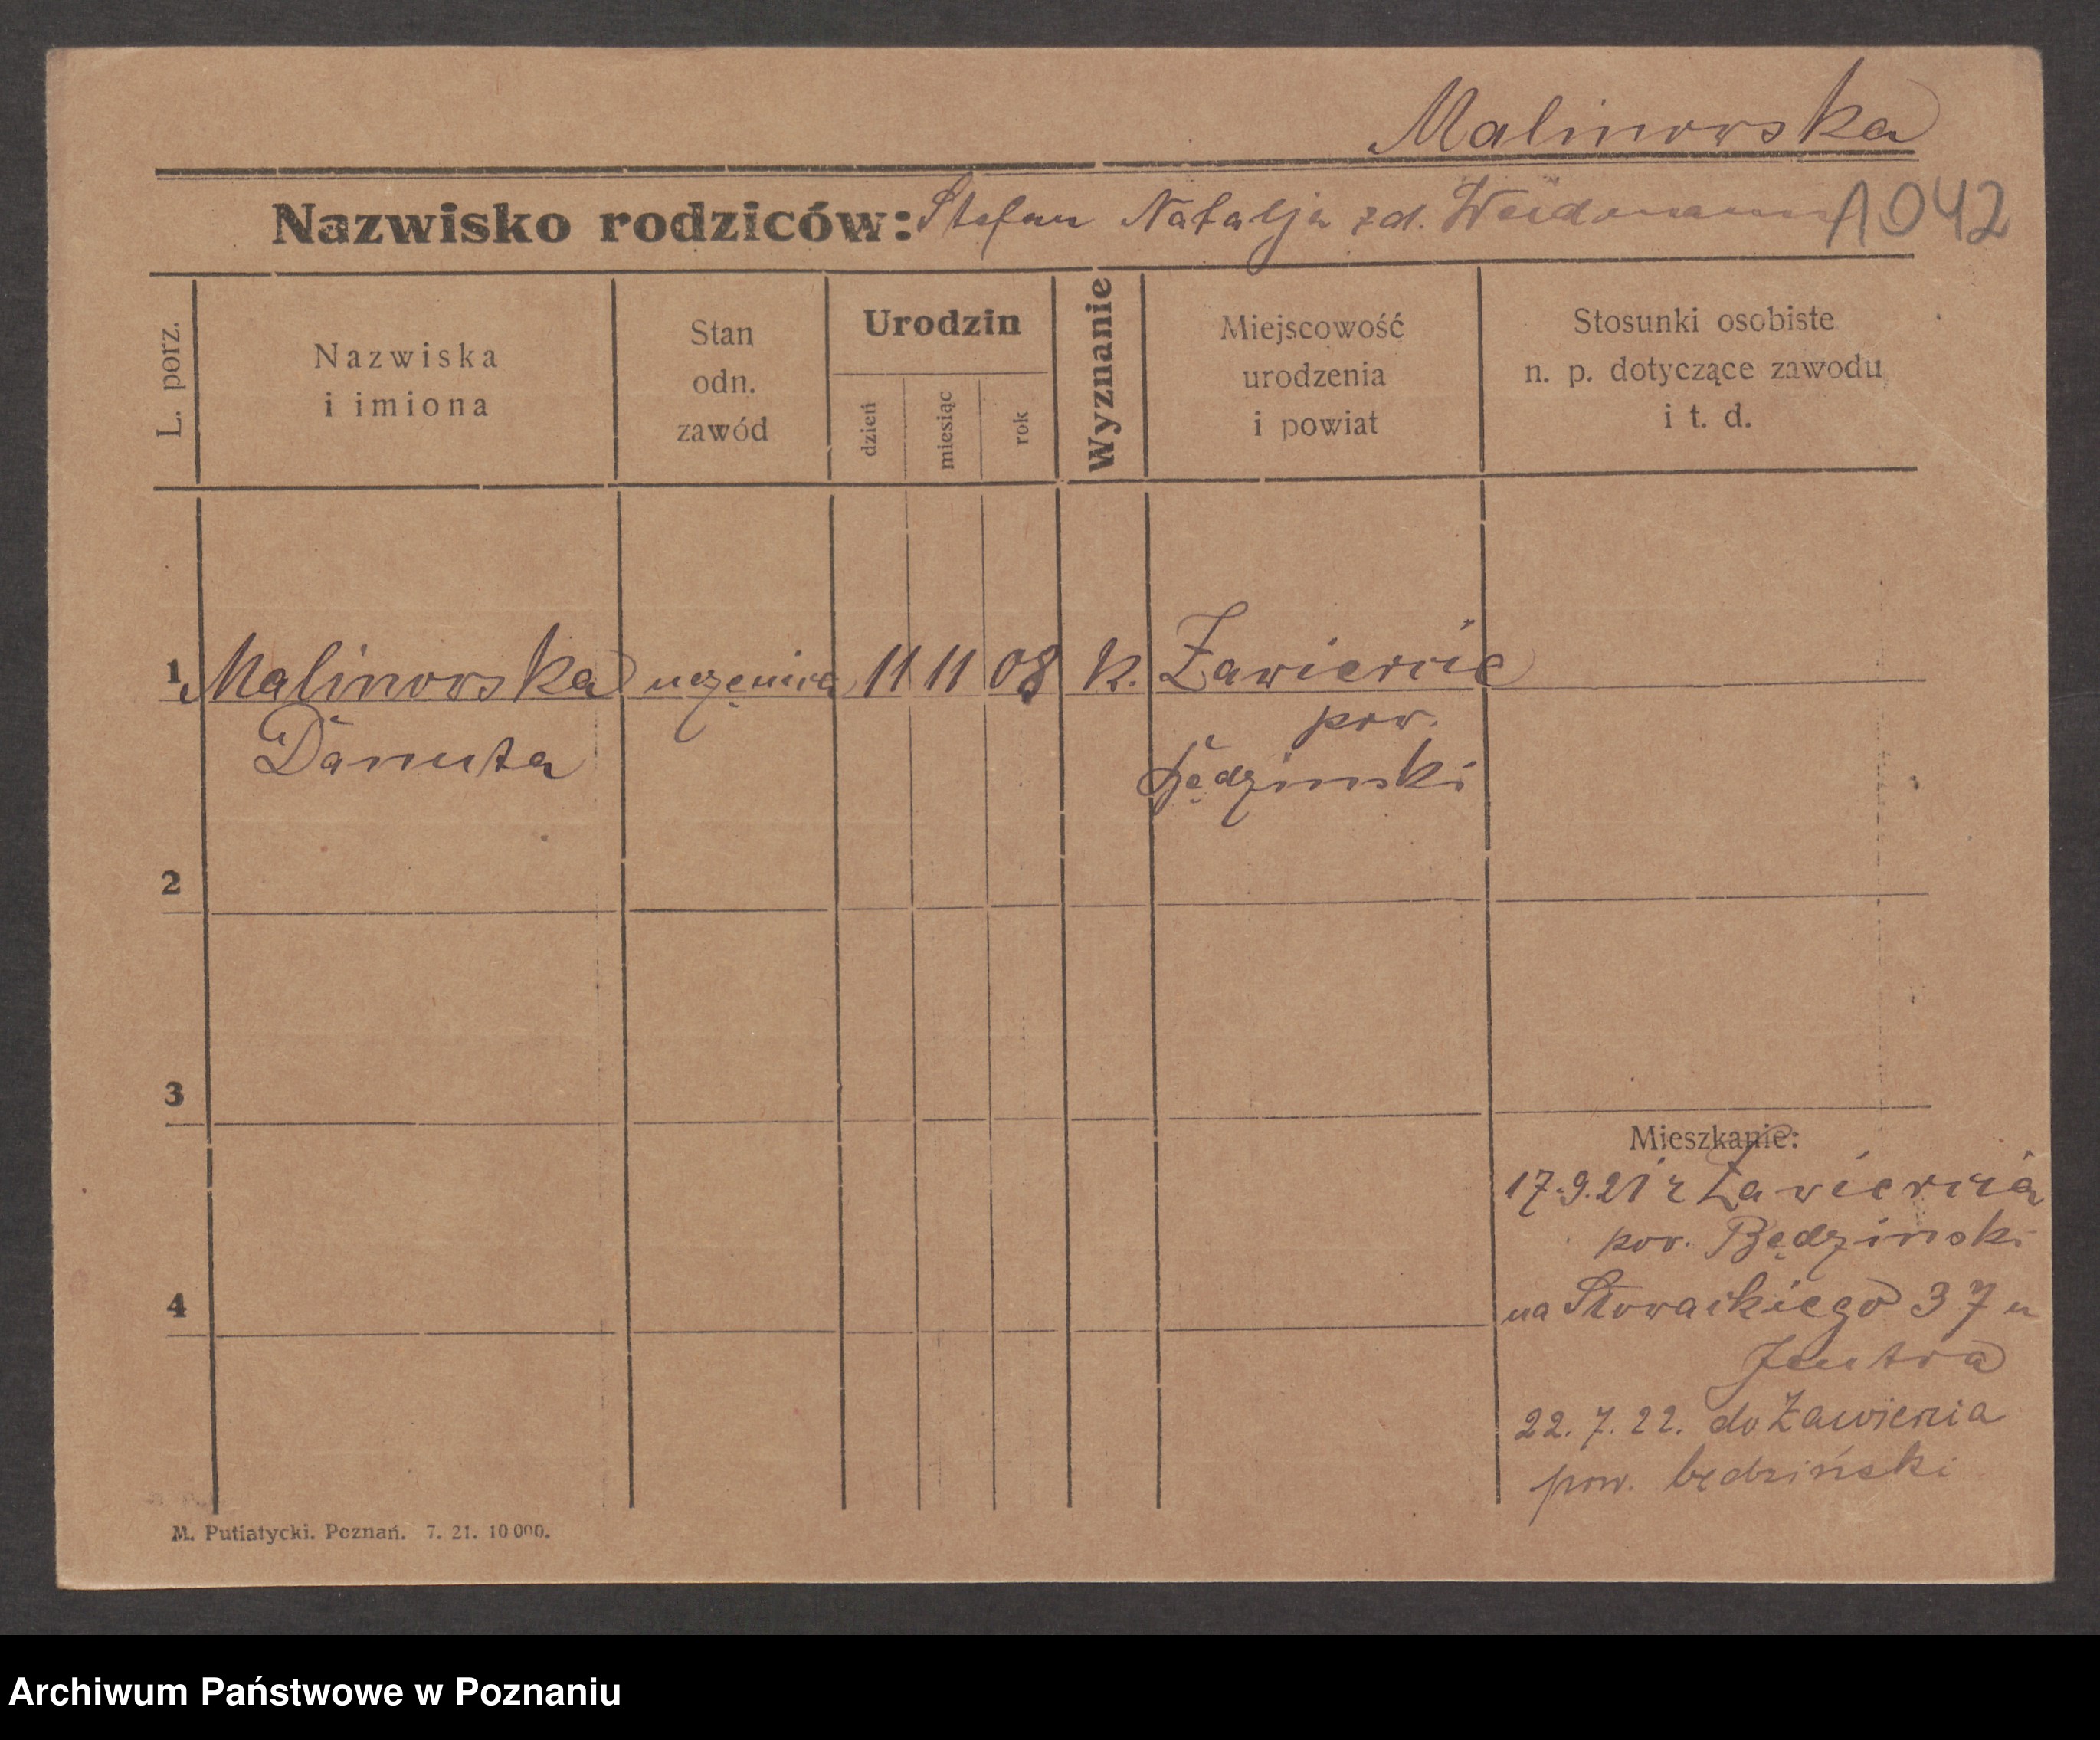 Malinowska
Nazwisko rodziców: Stefan Natalja zd. Weidemann 1042
L. porz.
Nazwiska
i imiona
Stan
odn.
zawód
Urodzin
dzień
miesiąc
rok
Wyznanie
Miejscowość
urodzenia
i powiat
Stosunki osobiste
n. p. dotyczące zawodu
i t. d.
1 Malinowska uczenica 11 11 08 k. Zawiercie
Danuta
pow.
Będzinski
2
3
4
Mieszkanie:
17.9.21 z Zawiercia
pow. Będzinski
na Słowackiego 37 u
22. 7. 22. do Zawiercia
pow. będziński
M. Putiatycki. Poznań. 7. 21. 10 000.
Archiwum Państwowe w Poznaniu